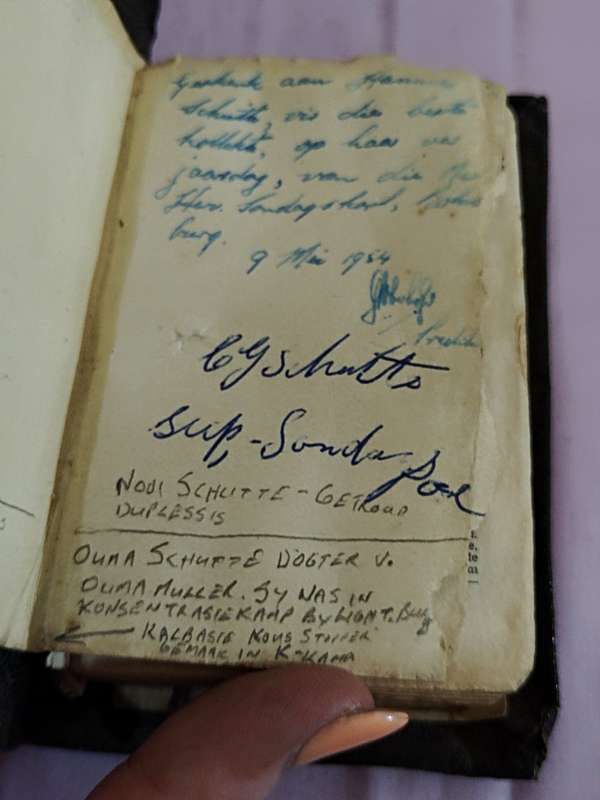 Geskenk aan
Schutte, vir die beste
kollekte, op haar ver
jaarsdag, van die
Her. Sondagskool,
burg.
9 Mei 1954
CGSchutte
Sup,-Sondag
NOOI SCHUTTE - GETROUD
DUPLESSIS
OUMA SCHUTTE DOGTER V.
OUMA MULLER. SY WAS IN
KONSENTRASIEKAMP BY
KALBASIE KOUS STOPPER
GEMAAK IN K-KAMP